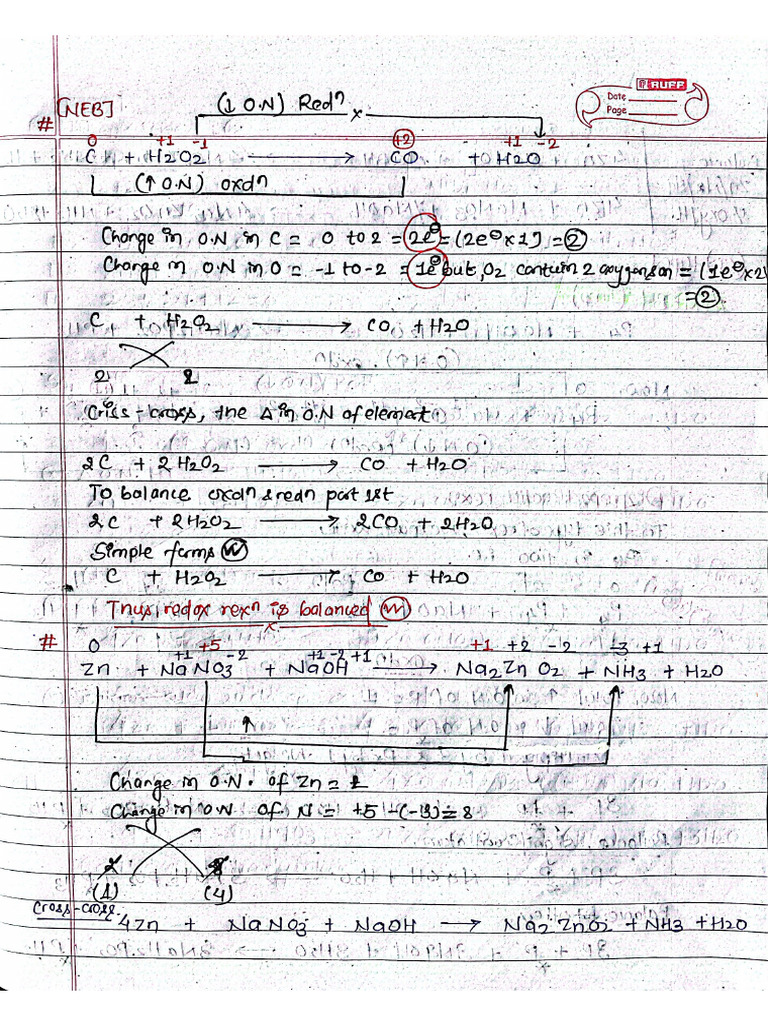 RUFF
Date
Page
[NEB] (↓ O.N) Redⁿ
#
0 +1 -1 +2 +1 -2
C + H2O2 → CO + H2O
(↑ O.N) oxdⁿ
Change in O.N in C = 0 to 2 = 2e⊖ = (2e⊖ x 1) = ②
Change in O.N in O = -1 to -2 = 1e⊖ but, O2 contain 2 oxygens on = (1e⊖ x 2)
= ②
C + H2O2 → CO + H2O
2 2
Criss-cross, the Δ in O.N of element
2C + 2H2O2 → CO + H2O
To balance oxdⁿ & redⁿ part 1st
2C + 2H2O2 → 2CO + 2H2O
Simple forms
C + H2O2 → CO + H2O
Thus redox rexⁿ is balanced
# 0 +1 +5 -2 +1 -2 +1 +1 +2 -2 -3 +1
Zn + NaNO3 + NaOH → Na2ZnO2 + NH3 + H2O
Change in O.N. of Zn = 2
Change in O.N of N = +5 -(-3) = 8
2 8
(1) (4)
Cross-cross
4Zn + NaNO3 + NaOH → Na2ZnO2 + NH3 + H2O